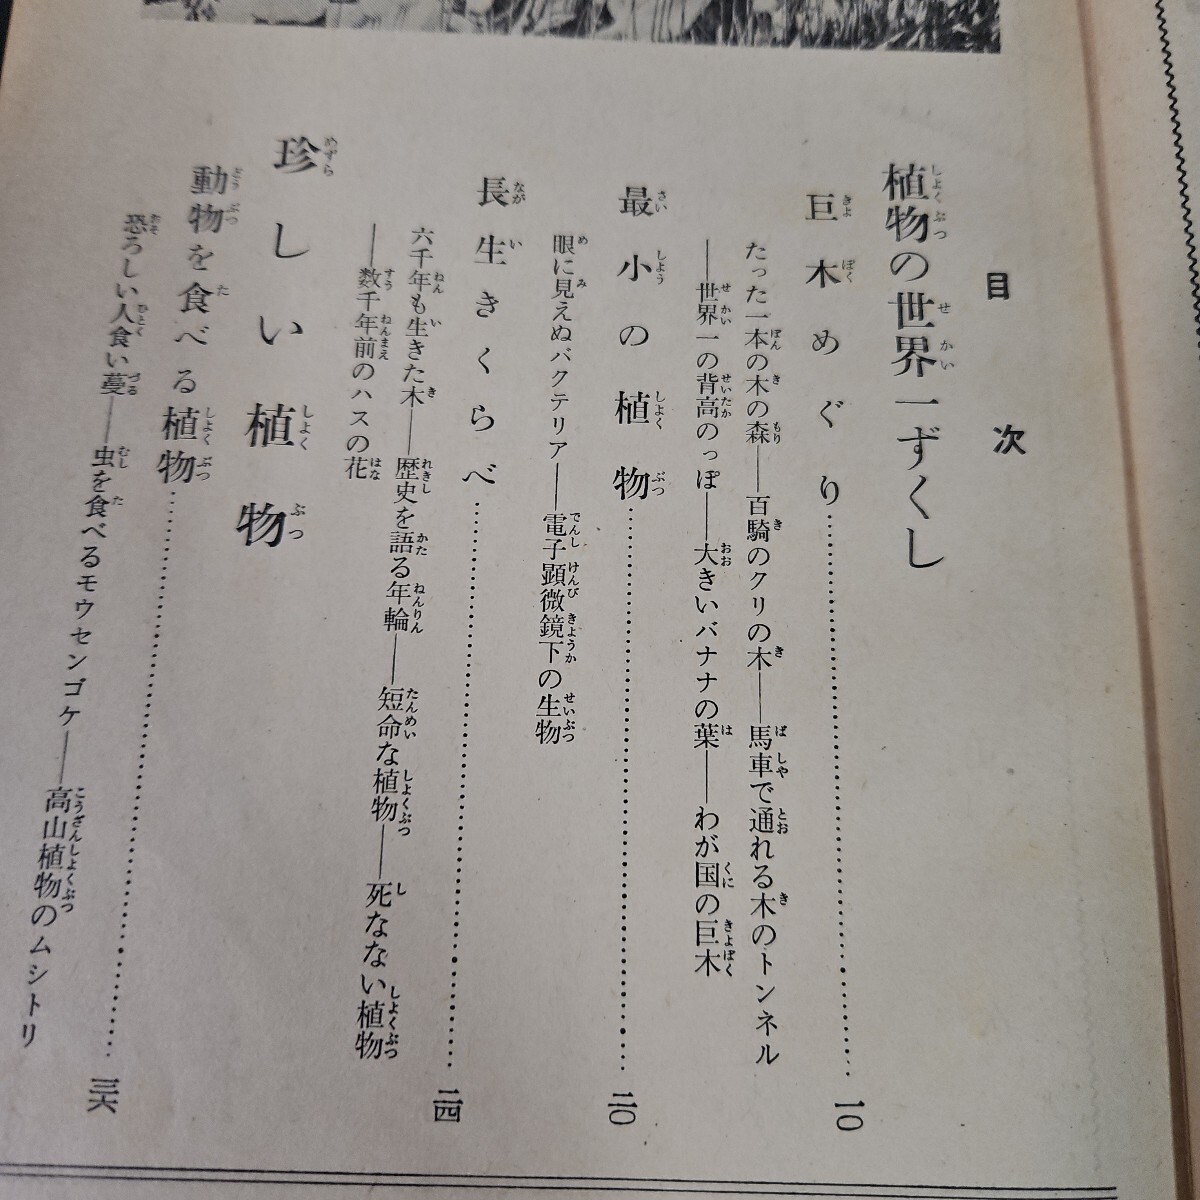 目次
植物の世界一ずくし
巨木めぐり……………………一〇
たった一本の木の森――百騎のクリの木――馬車で通れる木のトンネル
――世界一の背高のっぽ――大きいバナナの葉――わが国の巨木
最小の植物……………………二〇
眼に見えぬバクテリア――電子顕微鏡下の生物
長生きくらべ……………………二四
六千年も生きた木――歴史を語る年輪――短命な植物――死なない植物
――数千年前のハスの花
珍しい植物
動物を食べる植物……………………三六
恐ろしい人食い蔓――虫を食べるモウセンゴケ――高山植物のムシトリ